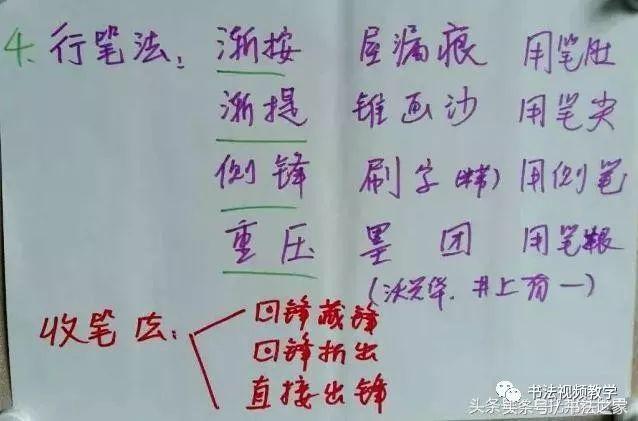 4. 行笔法: 渐按 屋漏痕 用笔肚
渐提 锥画沙 用笔尖
侧锋 刷字(米芾) 用侧笔
重压 墨团 用笔根
(沃兴华. 井上有一)
收笔法: 回锋藏锋
回锋折出
直接出锋
书法视频教学
头条头条号/书法世家